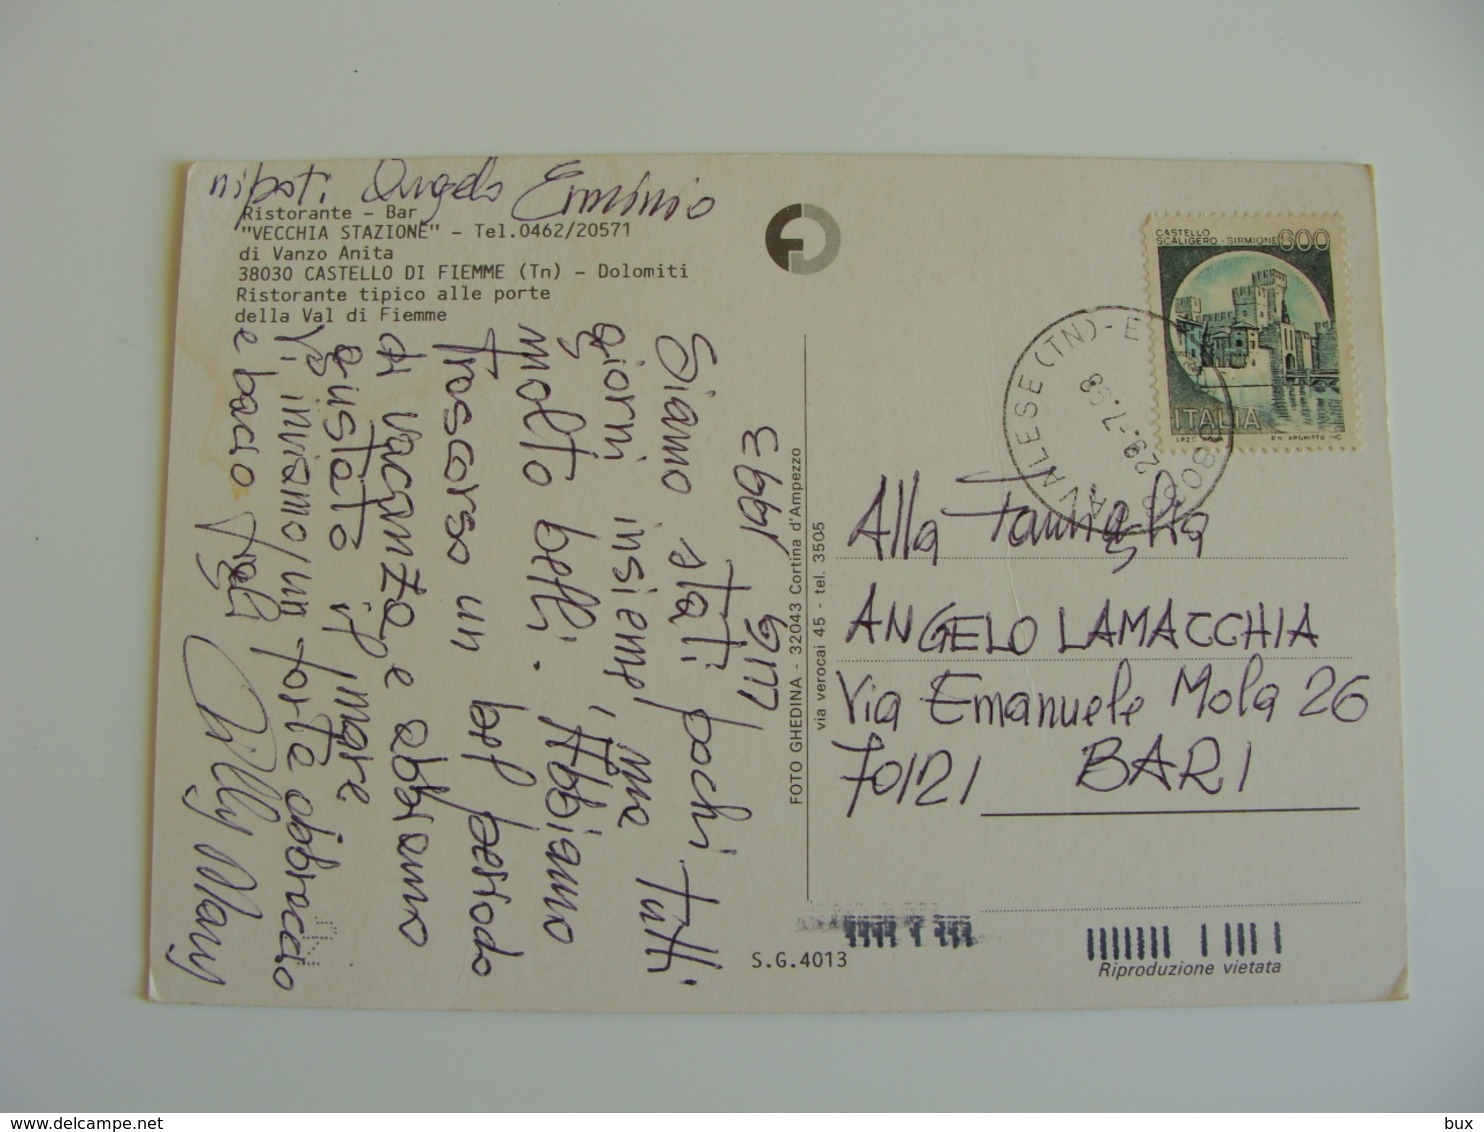 nipoti Angelo Erminio
Ristorante - Bar
"VECCHIA STAZIONE" - Tel.0462/20571
di Vanzo Anita
38030 CASTELLO DI FIEMME (Tn) - Dolomiti
Ristorante tipico alle porte
della Val di Fiemme
1993
Siamo stati pochi tutti
giorni insieme, ma
molto belli. Abbiamo
trascorso un bel periodo
di vacanza, e abbiamo
gustato il mare
Vi inviamo un forte abbraccio
e bacio
Mary
FOTO GHEDINA - 32043 Cortina d'Ampezzo
via verocai 45 - tel. 3505
S.G.4013
CASTELLO
SCALIGERO - SIRMIONE 600
ITALIA
I.P.Z.S. ROMA
AVALESE (TN) - E
29-7-93
Alla Famiglia
ANGELO LAMACCHIA
Via Emanuele Mola 26
70121 BARI
Riproduzione vietata
delcampe.net
bux